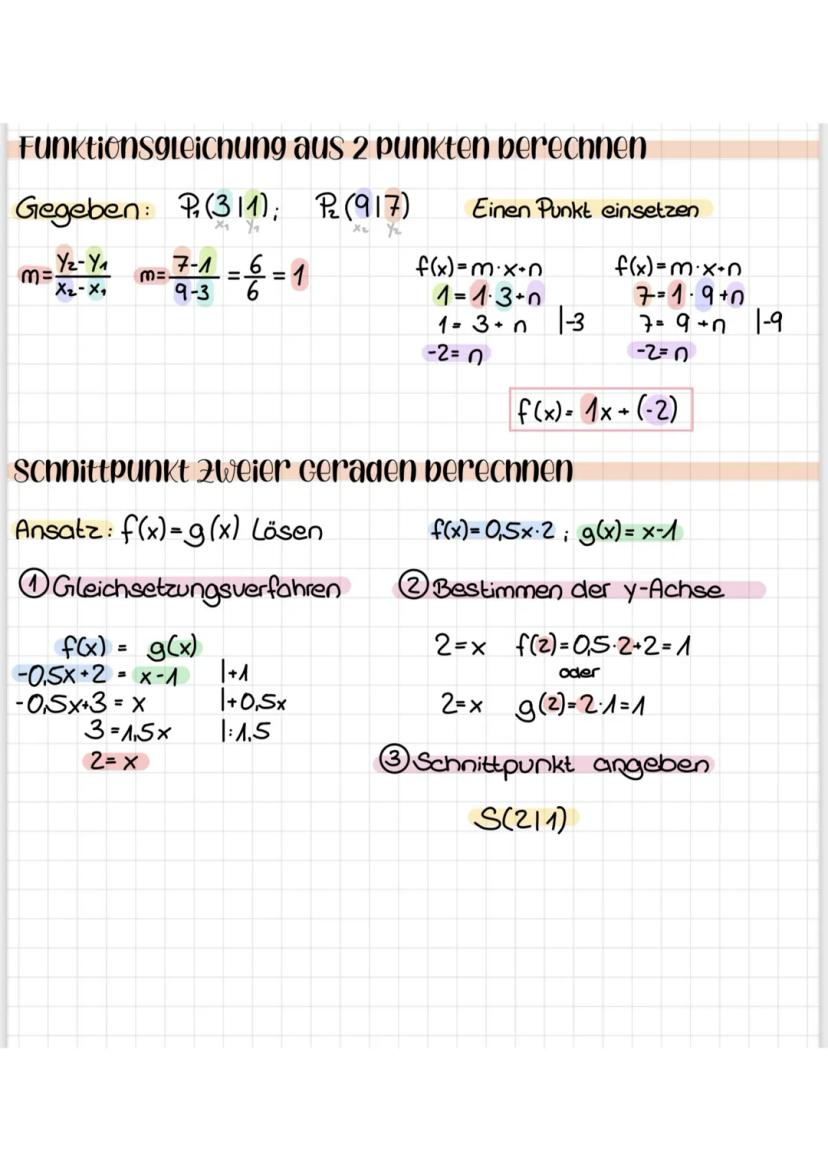 Funktionsgleichung aus 2 punkten berechnen
Gegeben: P₁(3|1); P₂(9|7)
x₁ y₁ x₂ y₂
m= y₂-y₁ / x₂-x₁ m= 7-1 / 9-3 = 6/6 = 1
Einen Punkt einsetzen
f(x)=m·x+n
1=1·3+n
1= 3+n |-3
-2= n
f(x)=m·x+n
7=1·9+n
7= 9+n |-9
-2= n
f(x)= 1x+(-2)
Schnittpunkt zweier Geraden berechnen
Ansatz: f(x)=g(x) Lösen
f(x)=0,5x·2 ; g(x)= x-1
① Gleichsetzungsverfahren
f(x) = g(x)
-0,5x+2 = x-1 |+1
-0,5x+3 = x |+0,5x
3 =1,5x |:1,5
2= x
② Bestimmen der y-Achse
2=x f(2)=0,5·2+2=1
oder
2=x g(2)=2·1=1
③ Schnittpunkt angeben
S(2|1)